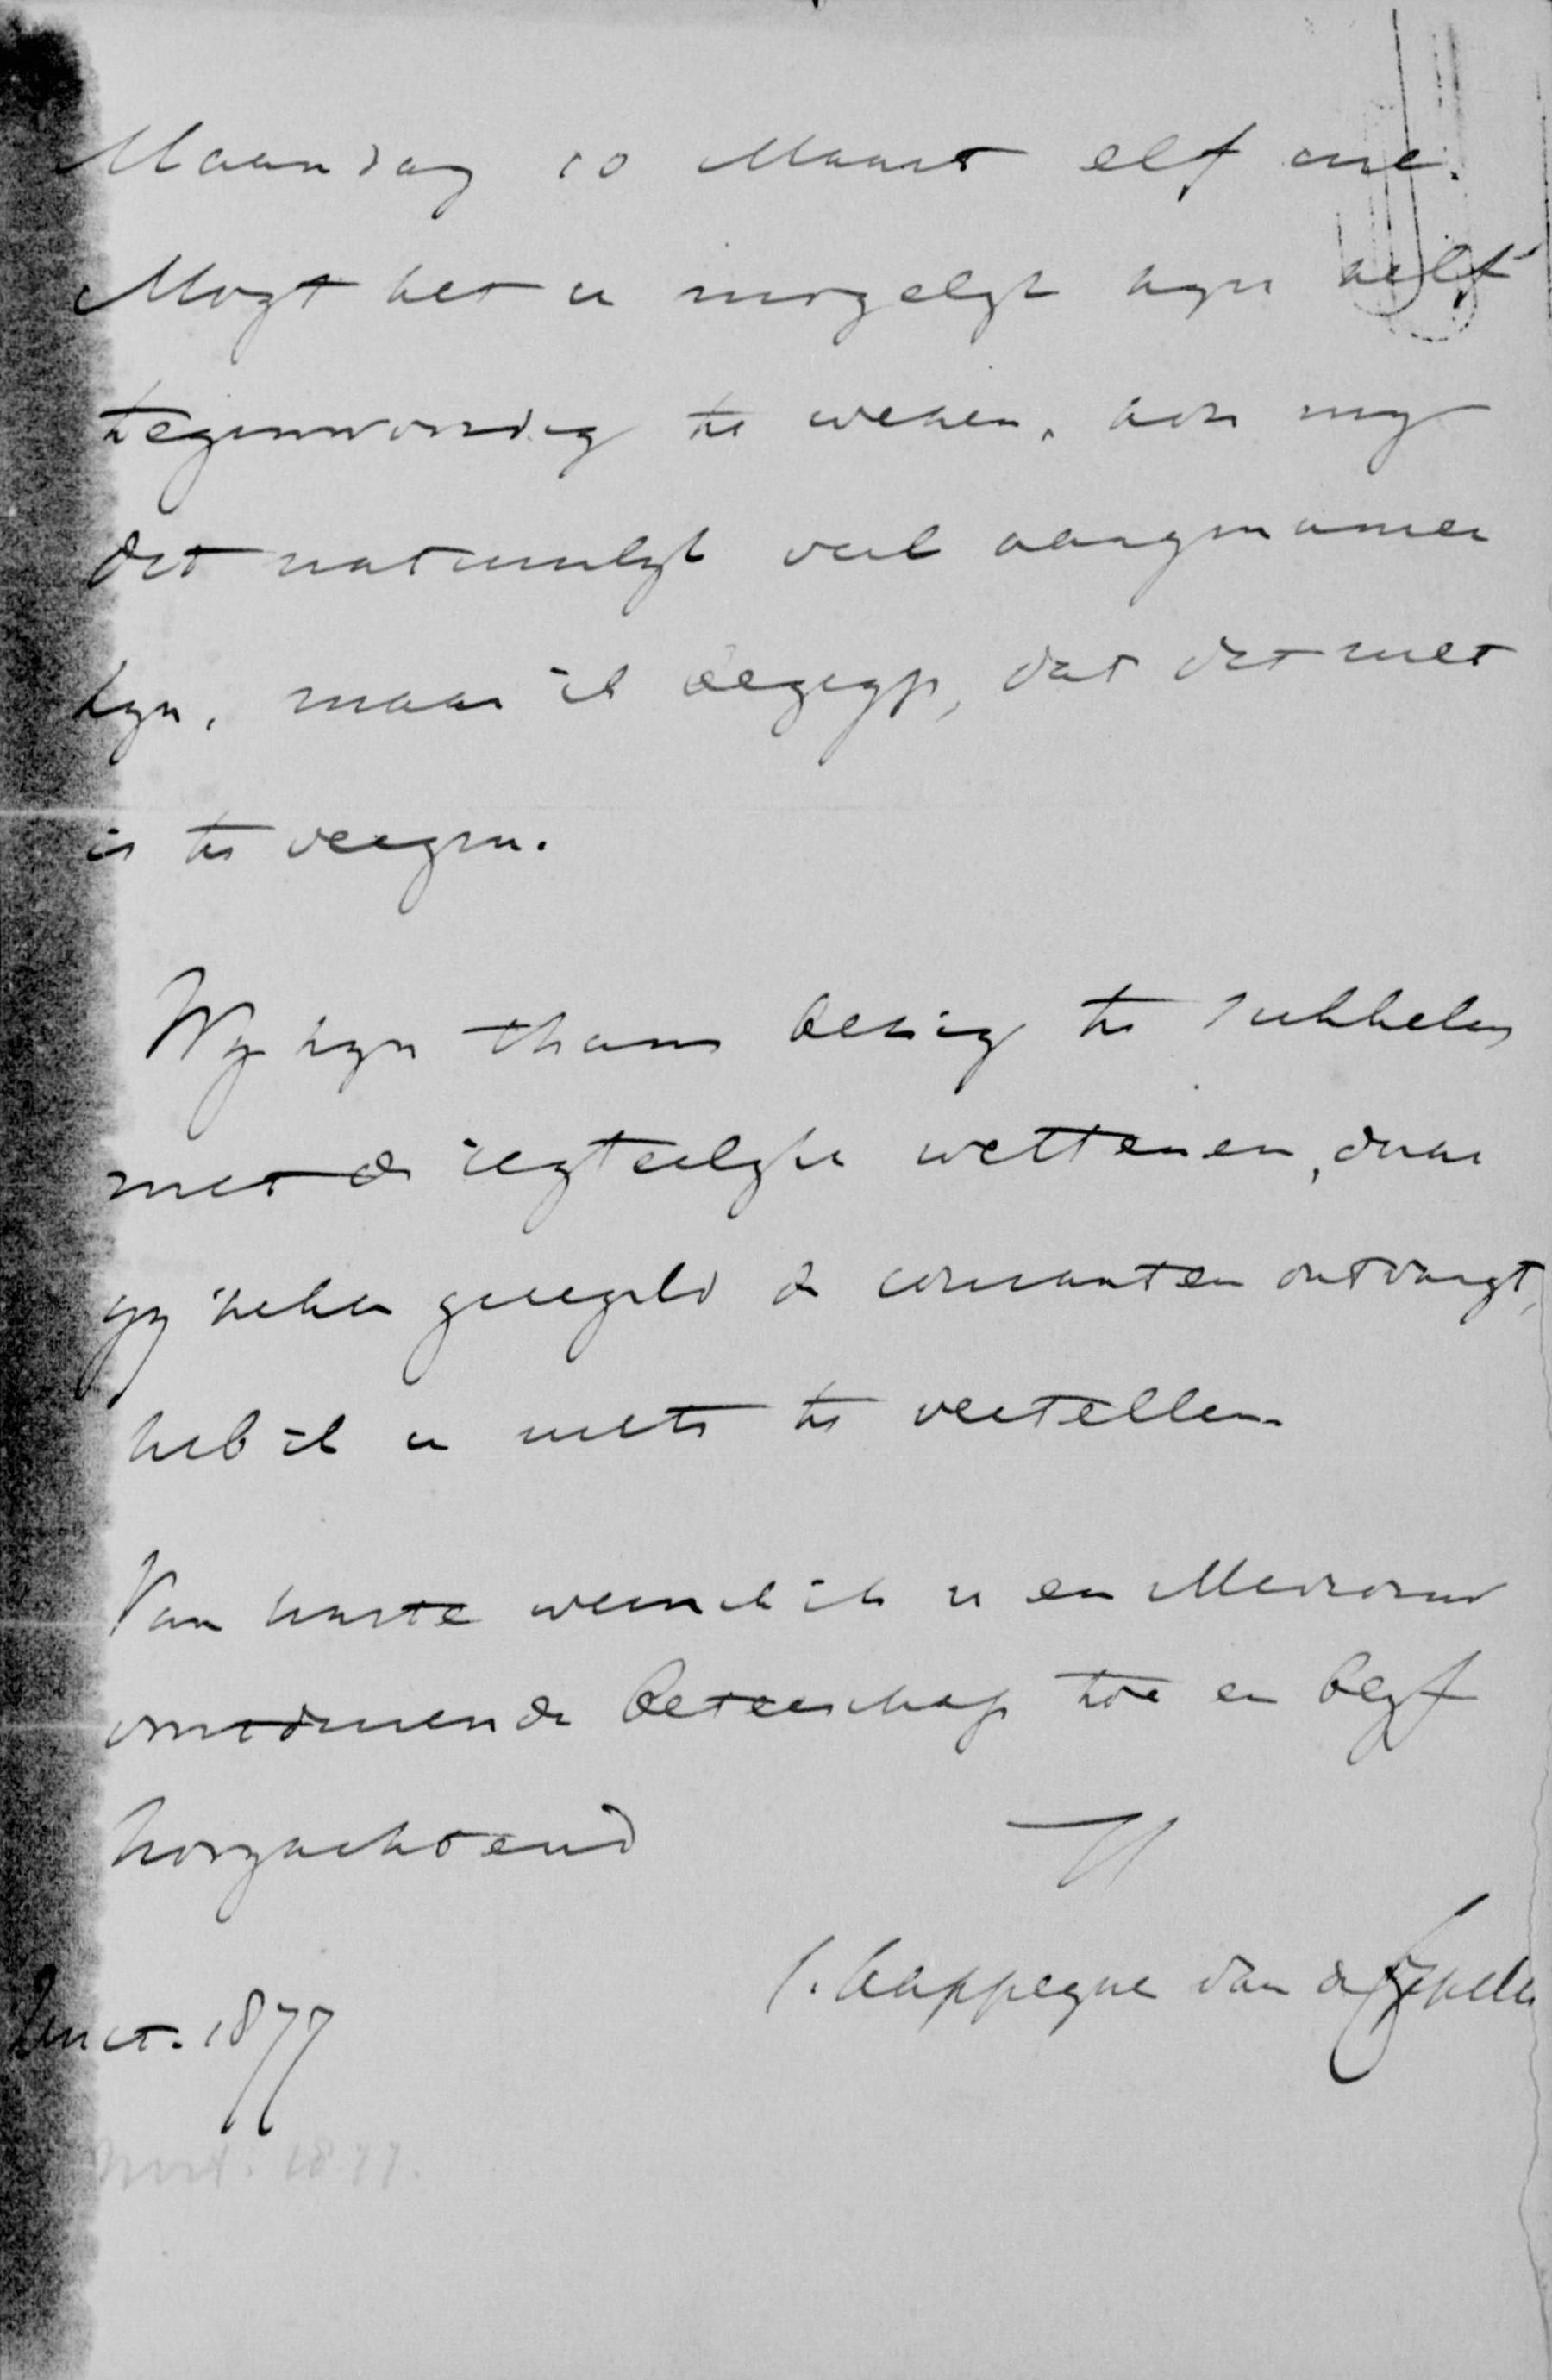 Maandag 10 Maart elf ure.
Mogt het u mogelyk zyn zelf
tegenwoordig te wezen, zou my
dit natuurlyk veel aangenamer
zyn, maar ik begryp, dat dit niet
is te vergen.
Wy zyn thans bezig te sukkelen
met de regterlyke wetten en, daar
gy zeker geregeld de couranten ontvangt,
heb ik u niets te vertellen.
Van harte wensch ik u en Mevrouw
voortdurende beterschap toe en blyf
hoogachtend
J. Kappeyne van de Coppello
Maart. 1877
Maart. 1877.